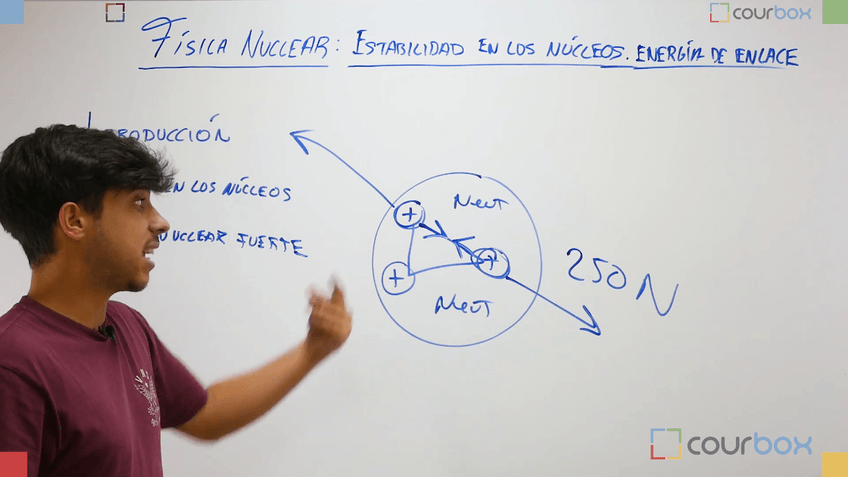 courbox
FÍSICA NUCLEAR: ESTABILIDAD EN LOS NÚCLEOS. ENERGÍA DE ENLACE
EN LOS NÚCLEOS
NUCLEAR FUERTE
+
Neut
+
+
Neut
250 N
courbox